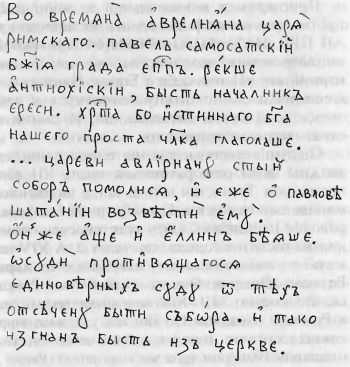 Во времѧна̀ аврелиѧна царѧ̀
римскаго. павелъ самосатскїй
бж҃їѧ града еп҃пъ. ре́кше
а҆нтиохїскїи, бысть начальникъ
ереси. хр҃та бо и҆стиннаго бг҃а
нашего проста чл҃ка глаголаше.
... цареви авлїриану ст҃ый
соборъ помолисѧ, и҆ еже ѻ҆ павловѣ
шата́нїи возвѣстѝ емꙋ̀.
ѻ҆н же аще и҆ е҆ллинъ бѣѧше.
ѡ҆сꙋдѝ проти́вѧщагосѧ
единовѣрныхъ сꙋдꙋ ѿ тѣхъ
отсѣченꙋ быти събо́ра. и҆ тако
изгнанъ бысть изъ церкве.